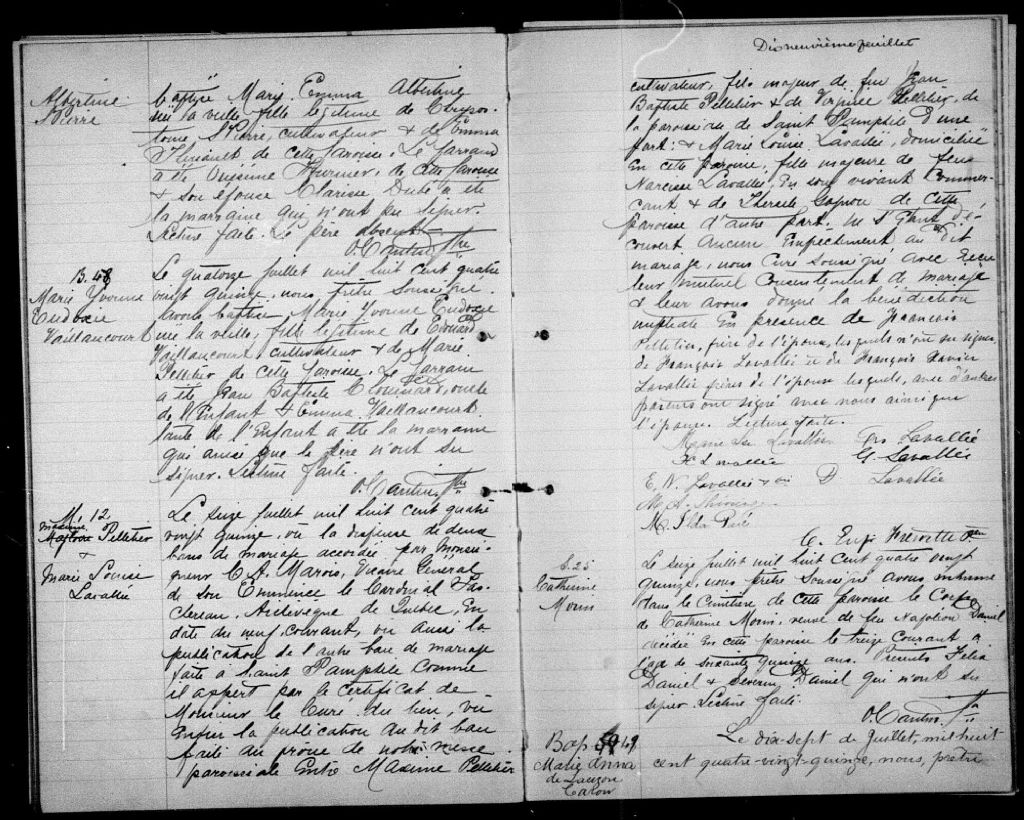 Albertine
Pierre
baptisé Marie Emma Albertine
née la veille fille légitime de Chryso-
tôme St Pierre, cultivateur & de Emma
Thibault de cette paroisse. Le parrain
a été Onésime Fournier, de cette paroisse
& son épouse Clarisse Dubé a été
la marraine qui n'ont pu signer.
Lecture faite. Le père absent.
O. Cantin Ptre
B. 48
Marie Yvonne
Eudoxie
Vaillancourt
Le quatorze juillet mil huit cent quatre
vingt quinze, nous, prêtre soussigné
avons baptisé Marie Yvonne Eudoxie
née la veille, fille légitime de Edouard
Vaillancourt cultivateur & de Marie
Pelletier de cette paroisse. Le parrain
a été Jean Baptiste Chouinard, oncle
de l'Enfant & Emma Vaillancourt
tante de l'Enfant a été la marraine
qui ainsi que le père n'ont su
signer. Lecture faite.
O. Cantin Ptre
M. 12
Maxime
Pelletier
&
Marie Louise
Lavallée
Le seize juillet mil huit cent quatre
vingt quinze, vu la dispense de deux
bans de mariage accordée par Monsei-
gneur C. A. Marois, Vicaire Général
de son Eminence le Cardinal Tas-
chereau, Archevêque de Québec, En
date du neuf courant, vu aussi la
publication de l'autre ban de mariage
faite à Saint Pamphile comme
il appert par le certificat de
Monsieur le Curé du lieu, vu
Enfin la publication du dit ban
faite au prône de notre messe
paroissiale Entre Maxime Pelletier
Dix neuvième feuillet
cultivateur, fils majeur de feu Jean
Baptiste Pelletier & de Virginie Pelletier, de
la paroisse de Saint Pamphile d'une
part: & Marie Louise Lavallée, domiciliée
En cette paroisse, fille majeure de feu
Narcisse Lavallée En son vivant Commer-
çant & de Thersile Gagnon de cette
paroisse d'autre part, ne s'étant dé-
couvert aucun Empêchement au dit
mariage, nous Curé soussigné avons reçu
leur mutuel Consentement de mariage
& leur avons donné la bénédiction
nuptiale En présence de François
Pelletier, frère de l'époux, lesquels n'ont su signer,
de François Lavallée et de François Xavier
Lavallée frères de l'épouse lesquels, avec d'autres
parents ont signé avec nous ainsi que
l'épouse. Lecture faite.
Lavallée Frs Lavallée
X Lavallée G. Lavallée
E. N. Lavallée Lavallée
M. A.
M. Ilda
C. Ptre
S. 25
Catherine
Morin
Le seize juillet mil huit cent quatre vingt
quinze, nous prêtre soussigné avons inhumé
dans le Cimetière de cette paroisse le Corps
de Catherine Morin, veuve de feu Napoléon Daniel
décédée En cette paroisse le treize Courant à
l'âge de soixante quinze ans. Présents Félix
Daniel & Séverin Daniel qui n'ont su
signer. Lecture faite.
O. Cantin Ptre
Bap 49
Marie Anna
de Lauzon
Caron
Le dix-sept de Juillet, mil huit
cent quatre-vingt-quinze, nous, prêtre